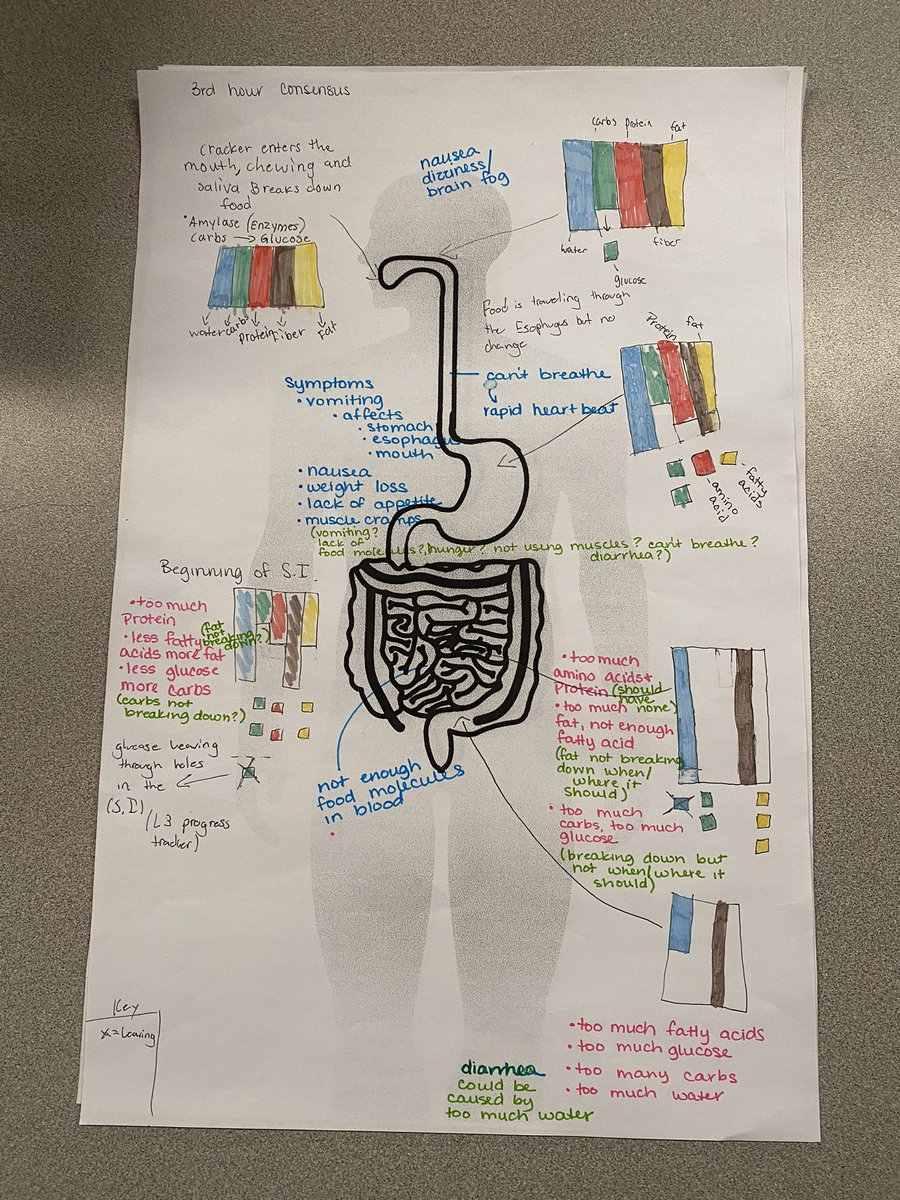 3rd hour consensus
Cracker enters the
mouth, chewing and
saliva Breaks down
food
• Amylase (Enzymes)
carbs → Glucose
water carbs protein fiber fat
nausea
dizziness/
brain fog
carbs protein fat
water fiber
glucose
Food is traveling through
the Esophugus but no
change
Protein fat
can't breathe
rapid heart beat
fatty
acids
amino
acid
Symptoms
• vomiting
• affects
• stomach
• esophagus
• mouth
• nausea
• weight loss
• lack of appetite
• muscle cramps
(vomiting?
lack of
food molecules?, hunger? not using muscles? can't breathe?
diarrhea?)
Beginning of S.I.
• too much
protein
• less fatty
acids more fat
• less glucose
more carbs
(carbs not
breaking down?)
(fat
not
breaking
down?)
glucose leaving
through holes
in the
(S.I)
(L3 progress
tracker)
not enough
food molecules
in blood
•
• too much
amino acids +
protein (should
have
none)
• too much
fat, not enough
fatty acid
(fat not breaking
down when/
where it
should)
• too much
carbs, too much
glucose
(breaking down but
not when/where it
should)
• too much fatty acids
• too much glucose
• too many carbs
• too much water
diarrhea
could be
caused by
too much water
Key
x = leaving